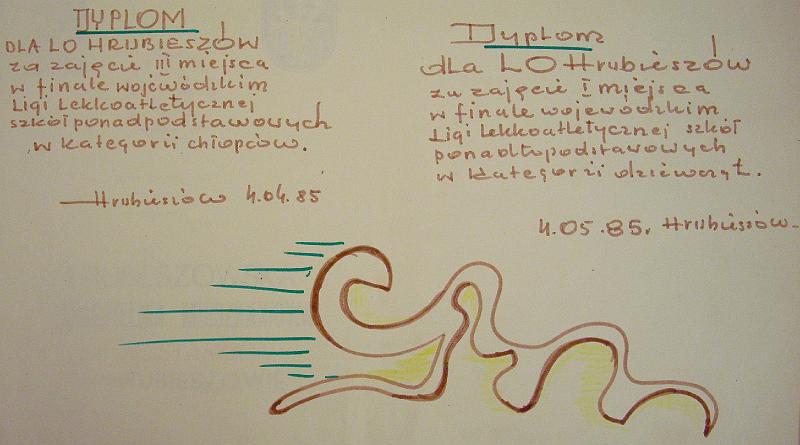 DYPLOM
DLA LO HRUBIESZÓW
za zajęcie III miejsca
w finale wojewódzkim
Ligi Lekkoatletycznej
szkół ponadpodstawowych
w kategorii chłopców.
Hrubieszów 4.04.85
Dyplom
dla LO Hrubieszów
za zajęcie I miejsca
w finale wojewódzkim
Ligi Lekkoatletycznej szkół
ponadpodstawowych
w kategorii dziewcząt.
4.05.85. Hrubieszów.